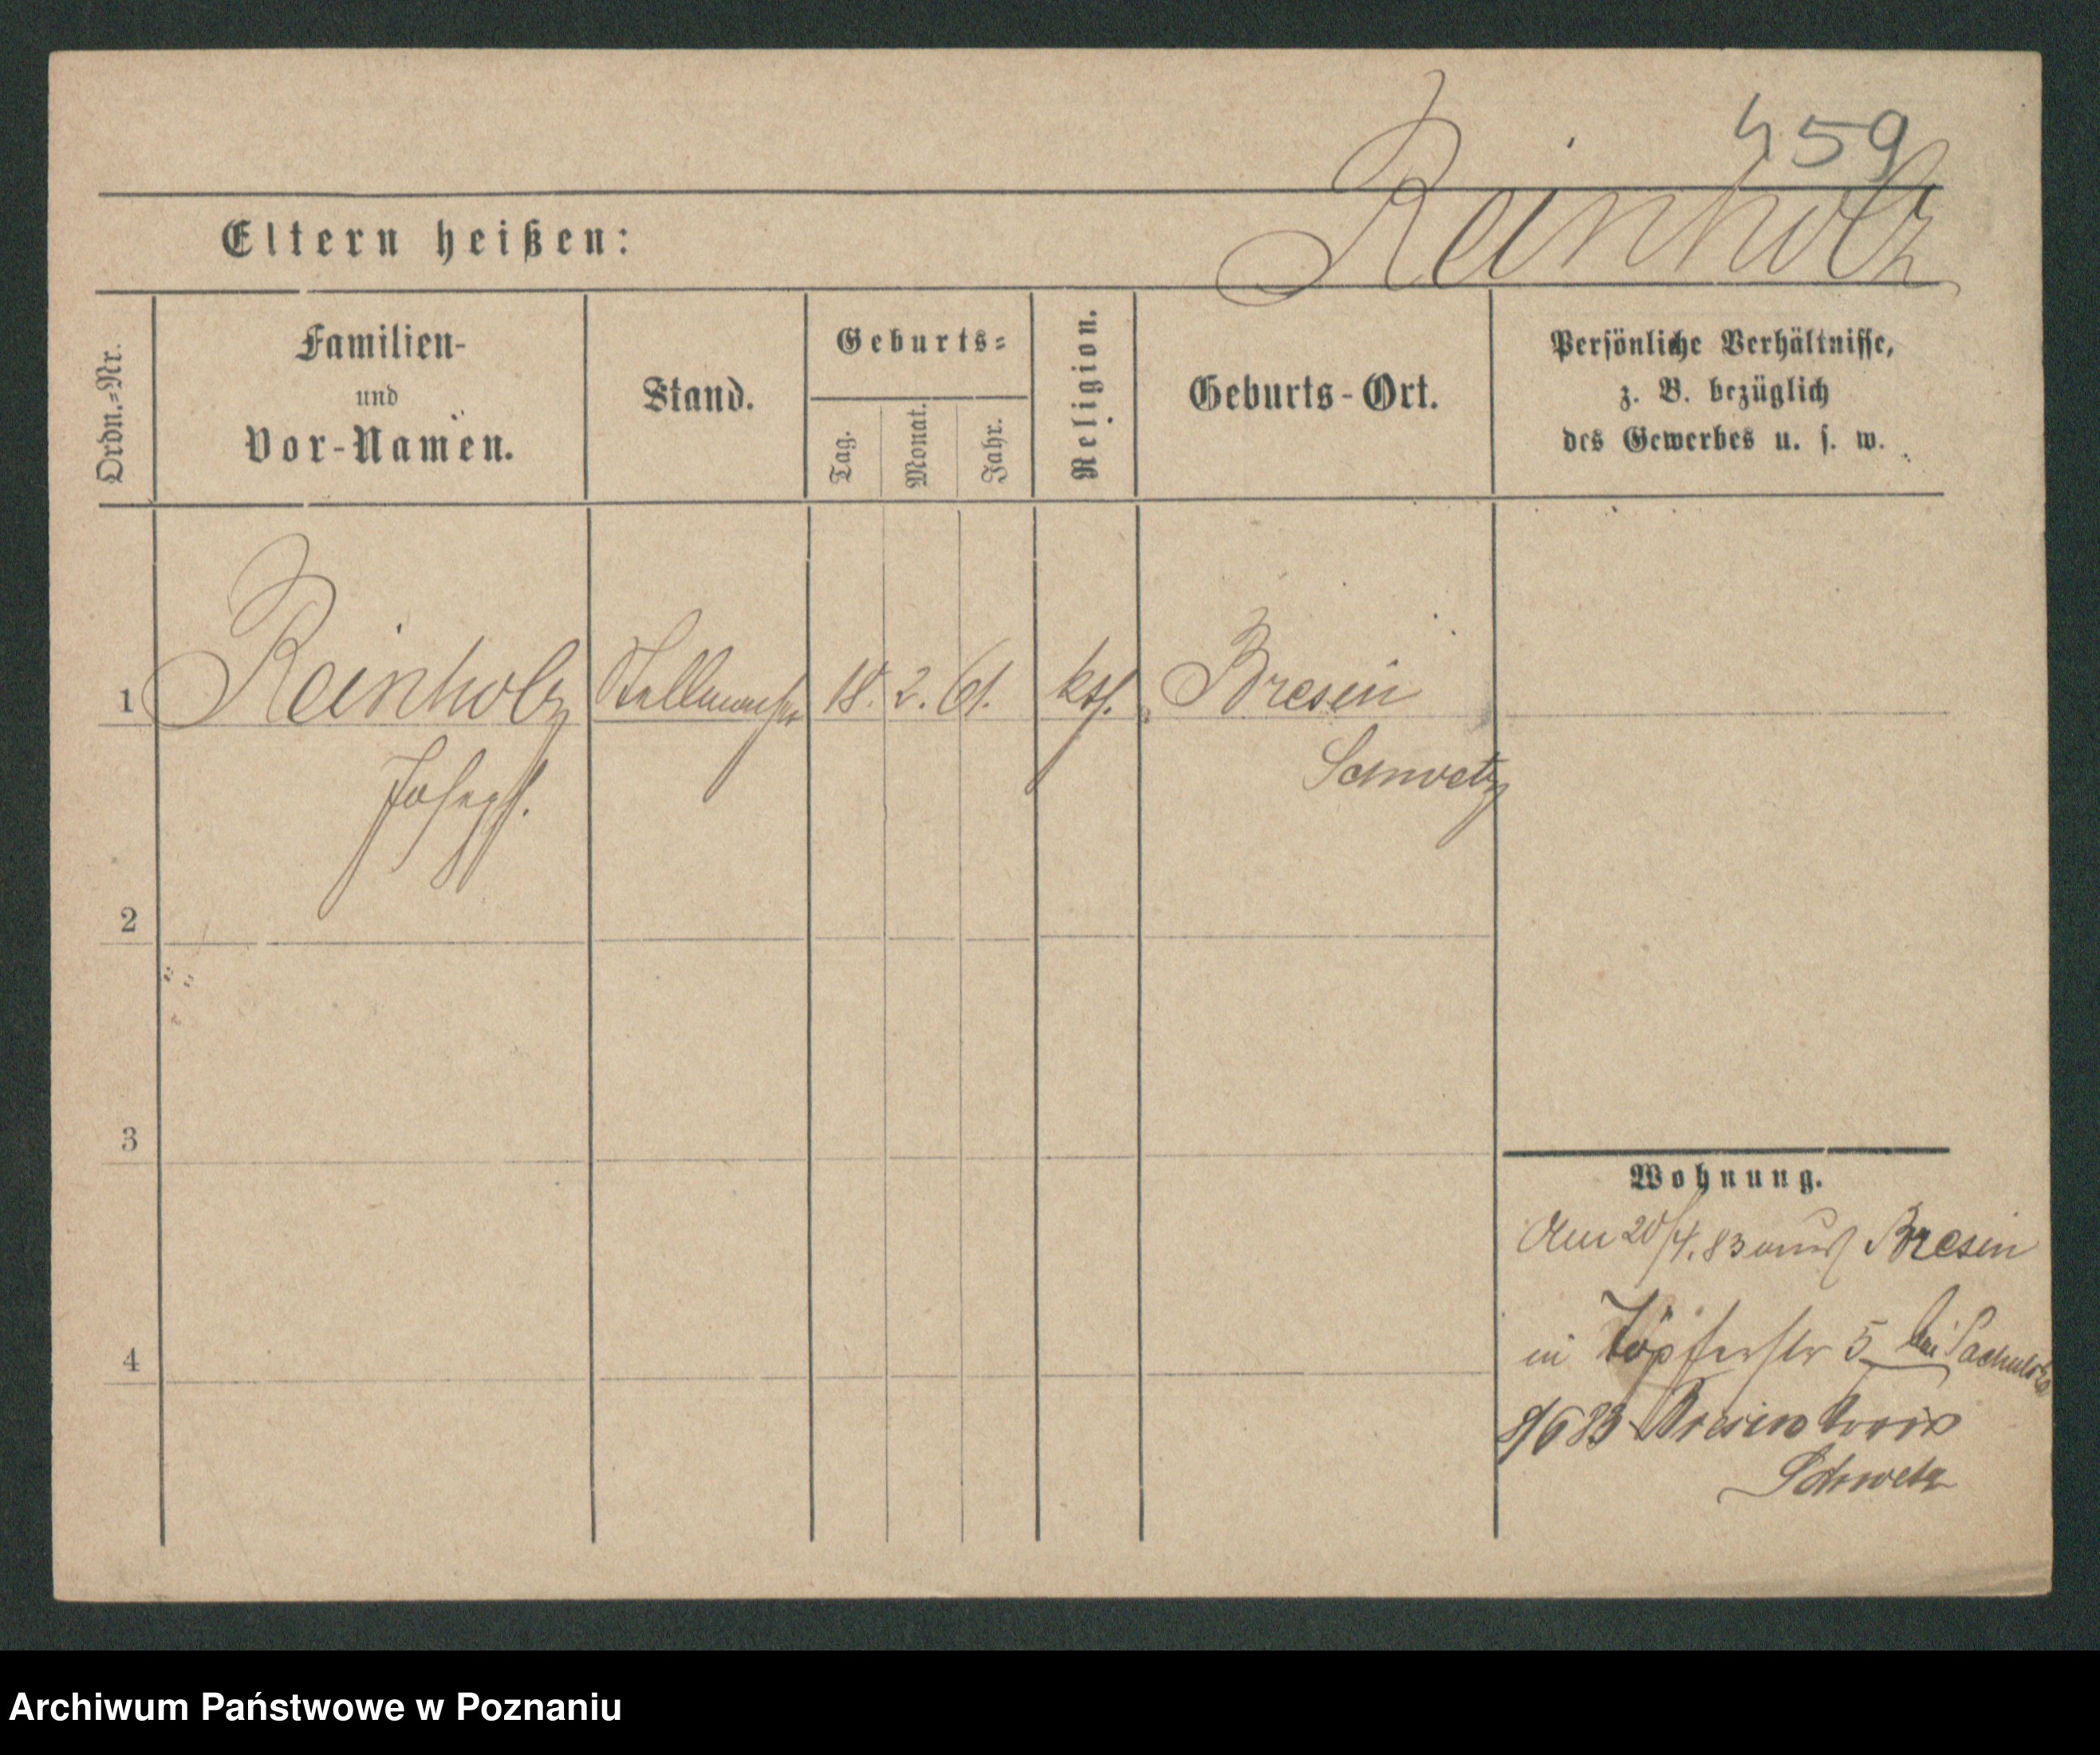 459
Reinholz
Eltern heißen:
Ordn.-Nr.
Familien-
und
Vor-Namen.
Stand.
Geburts-
Tag.
Monat.
Jahr.
Religion.
Geburts-Ort.
Persönliche Verhältnisse,
z. B. bezüglich
des Gewerbes u. s. w.
1 Reinholz 18. 2. 61. kth. Bresin
Joseph. Schwetz
2
3
4
Wohnung.
Am 20/4. 83 aus Bresin
in Töpferstr 5 bei
8/6 83 Bresin Kreis
Schwetz
Archiwum Państwowe w Poznaniu